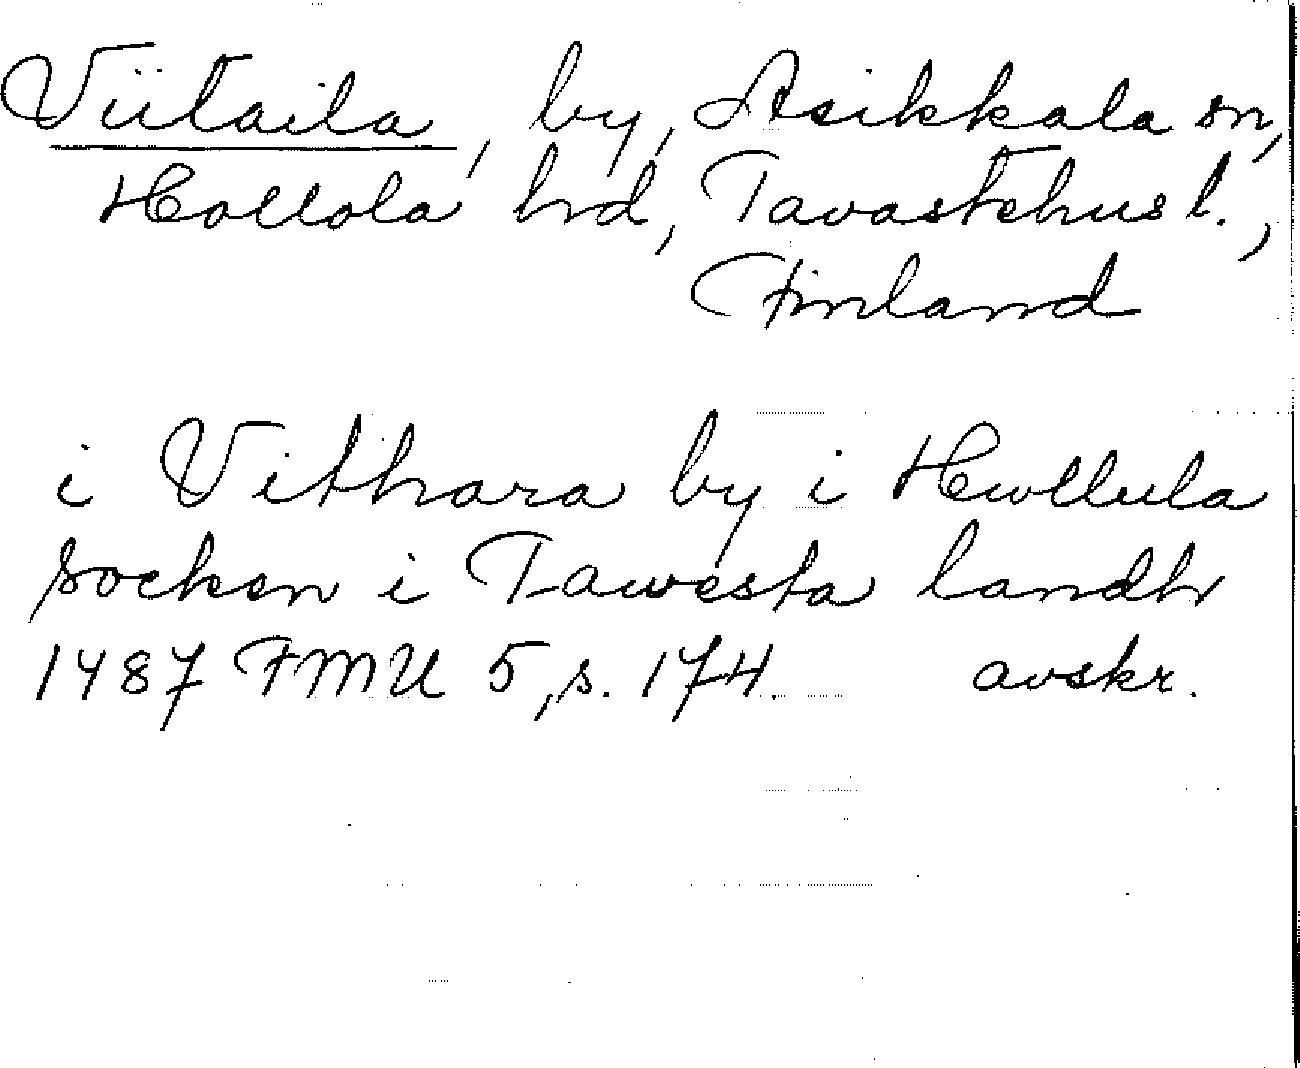 Viitaila, by, Asikkala sn,
Hollola hrd, Tavastehus l.,
Finland
i Vithara by i Hwllula
socken i Tawesta landh
1487 FMU 5, s. 174. avskr.